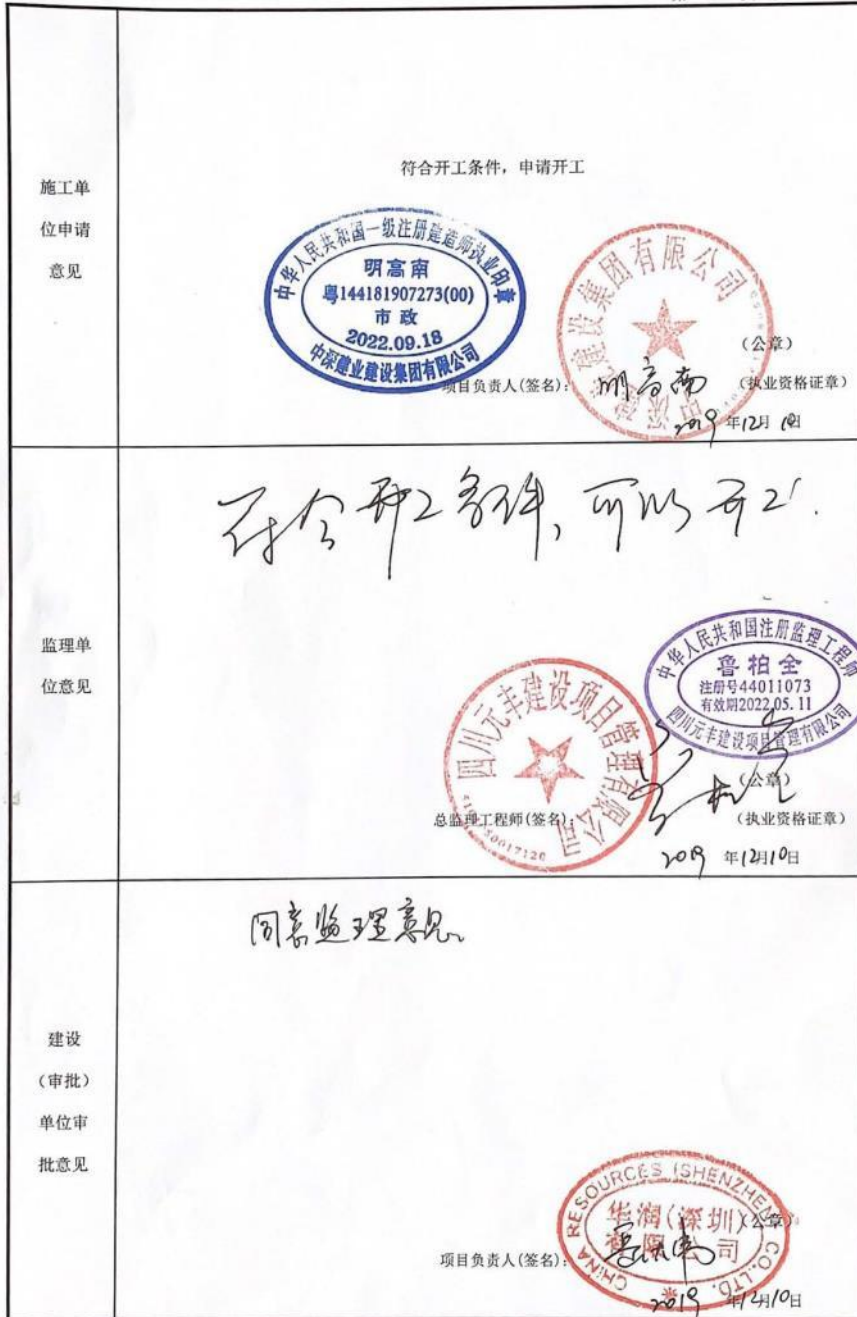 施工单
位申请
意见
符合开工条件，申请开工
中华人民共和国一级注册建造师执业印章
明高南
粤144181907273(00)
市政
2022.09.18
中深建业建设集团有限公司
中深建业建设集团有限公司
(公章)
项目负责人(签名)： 明高南 (执业资格证章)
2019 年12月10日
监理单
位意见
符合开工条件，可以开工.
中华人民共和国注册监理工程师
鲁柏全
注册号44011073
有效期2022.05.11
四川元丰建设项目管理有限公司
四川元丰建设项目管理有限公司
(公章)
总监理工程师(签名)： (执业资格证章)
2019 年12月10日
建设
(审批)
单位审
批意见
同意监理意见。
CHINA RESOURCES (SHENZHEN) CO.,LTD.
华润(深圳)
有限公司
(公章)
项目负责人(签名)：
2019 年12月10日